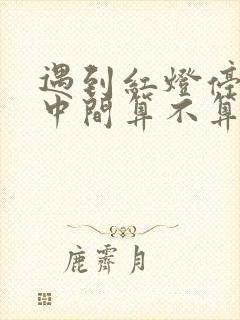 遇到紅燈停
中間算不算
鹿霽月